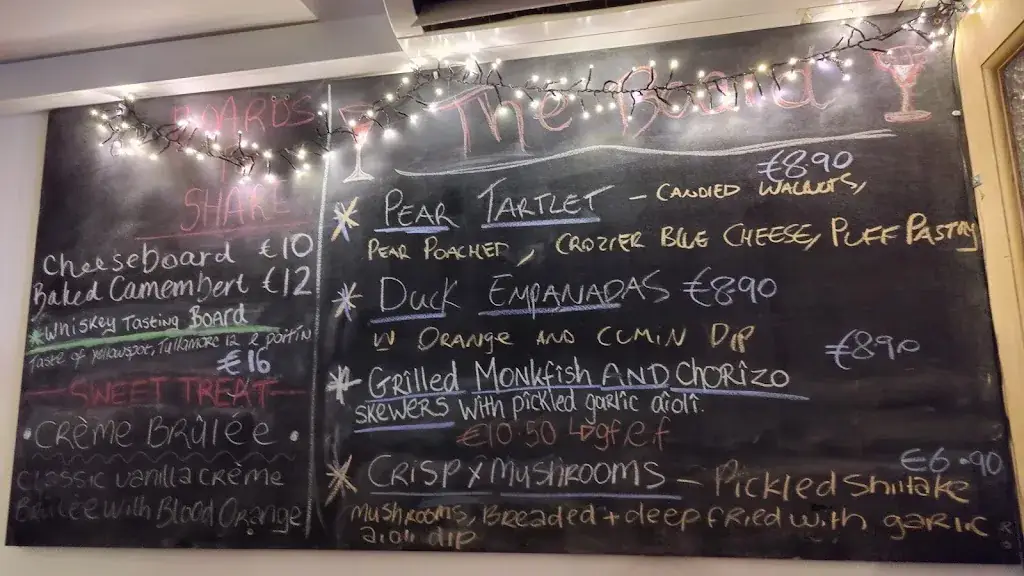 BOARDS
TO
SHARE
Cheeseboard €10
Baked Camembert €12
*Whiskey Tasting Board
Taste of yellowspot, Tullamore 12 & poitín
€16
SWEET TREAT
• CRÈME BRÛLÉE •
Classic vanilla crème
Brûlée with Blood Orange
The Board
€8.90
* PEAR TARTLET – CANDIED WALNUTS,
PEAR POACHED, CROZIER BLUE CHEESE, PUFF PASTRY
* DUCK EMPANADAS €8.90
W ORANGE AND CUMIN DIP
€8.90
* Grilled Monkfish AND Chorizo
SKEWERS with pickled garlic aioli.
€10.50 gf.ef
€6.90
* CRISPY MUSHROOMS – Pickled Shiitake
mushrooms, Breaded + deep fried with garlic
aioli dip